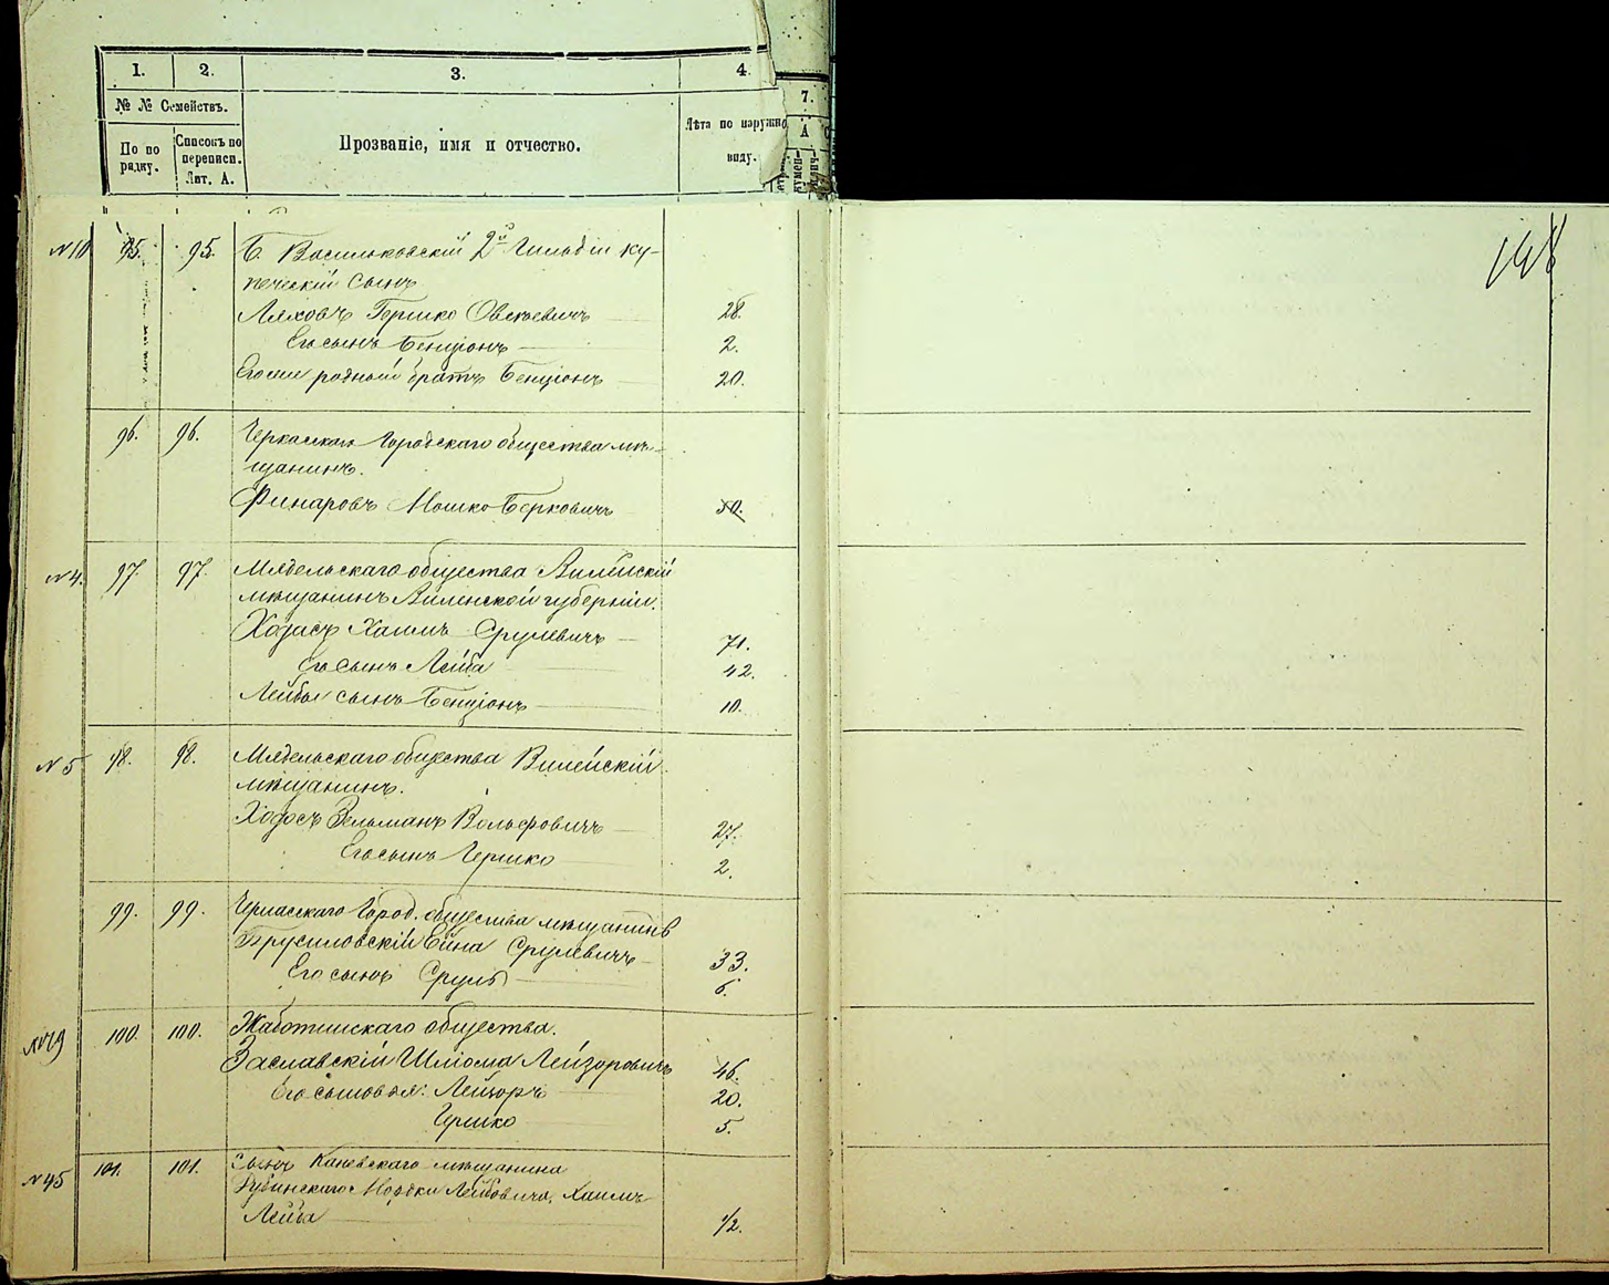 1. 2. 3. 4.
№ № Семействъ.
По по рядку.
Списокъ по переписи. Лит. А.
Прозваніе, имя и отчество.
Лѣта по наружно
виду.
7.
А
148
№10 95. 95. Б. Васильковскій 2й Гильдіи ку-
печескій сынъ
Ляховъ Гершко Овсѣевичъ 28.
Его сынъ Бенціонъ 2.
Его же родный братъ Бенціонъ 20.
96. 96. Черкасскаго Городскаго общества мѣ-
щанинъ.
Финаровъ Мошко Берковичъ 30.
№4. 97. 97. Мядельскаго общества Вилейскій
мѣщанинъ Виленской губерніи.
Ходасъ Хаимъ Срулевичъ 71.
Его сынъ Лейба 42.
Лейбы сынъ Бенціонъ 10.
№5 98. 98. Мядельскаго общества Вилейскій
мѣщанинъ.
Ходосъ Зельманъ Вольфовичъ 27.
Его сынъ Гершко 2.
99. 99. Черкасскаго Город. общества мѣщанинъ
Брусиловскій Ейна Срулевичъ 33.
Его сынъ Сруль 6.
№49 100. 100. Жаботинскаго общества.
Заславскій Шліома Лейзоровичъ 46.
Его сыновья: Лейзоръ 20.
Гершко 5.
№45 101. 101. Сынъ Каневскаго мѣщанина
Мордки Лейбовича, Хаимъ
Лейба 1/2.